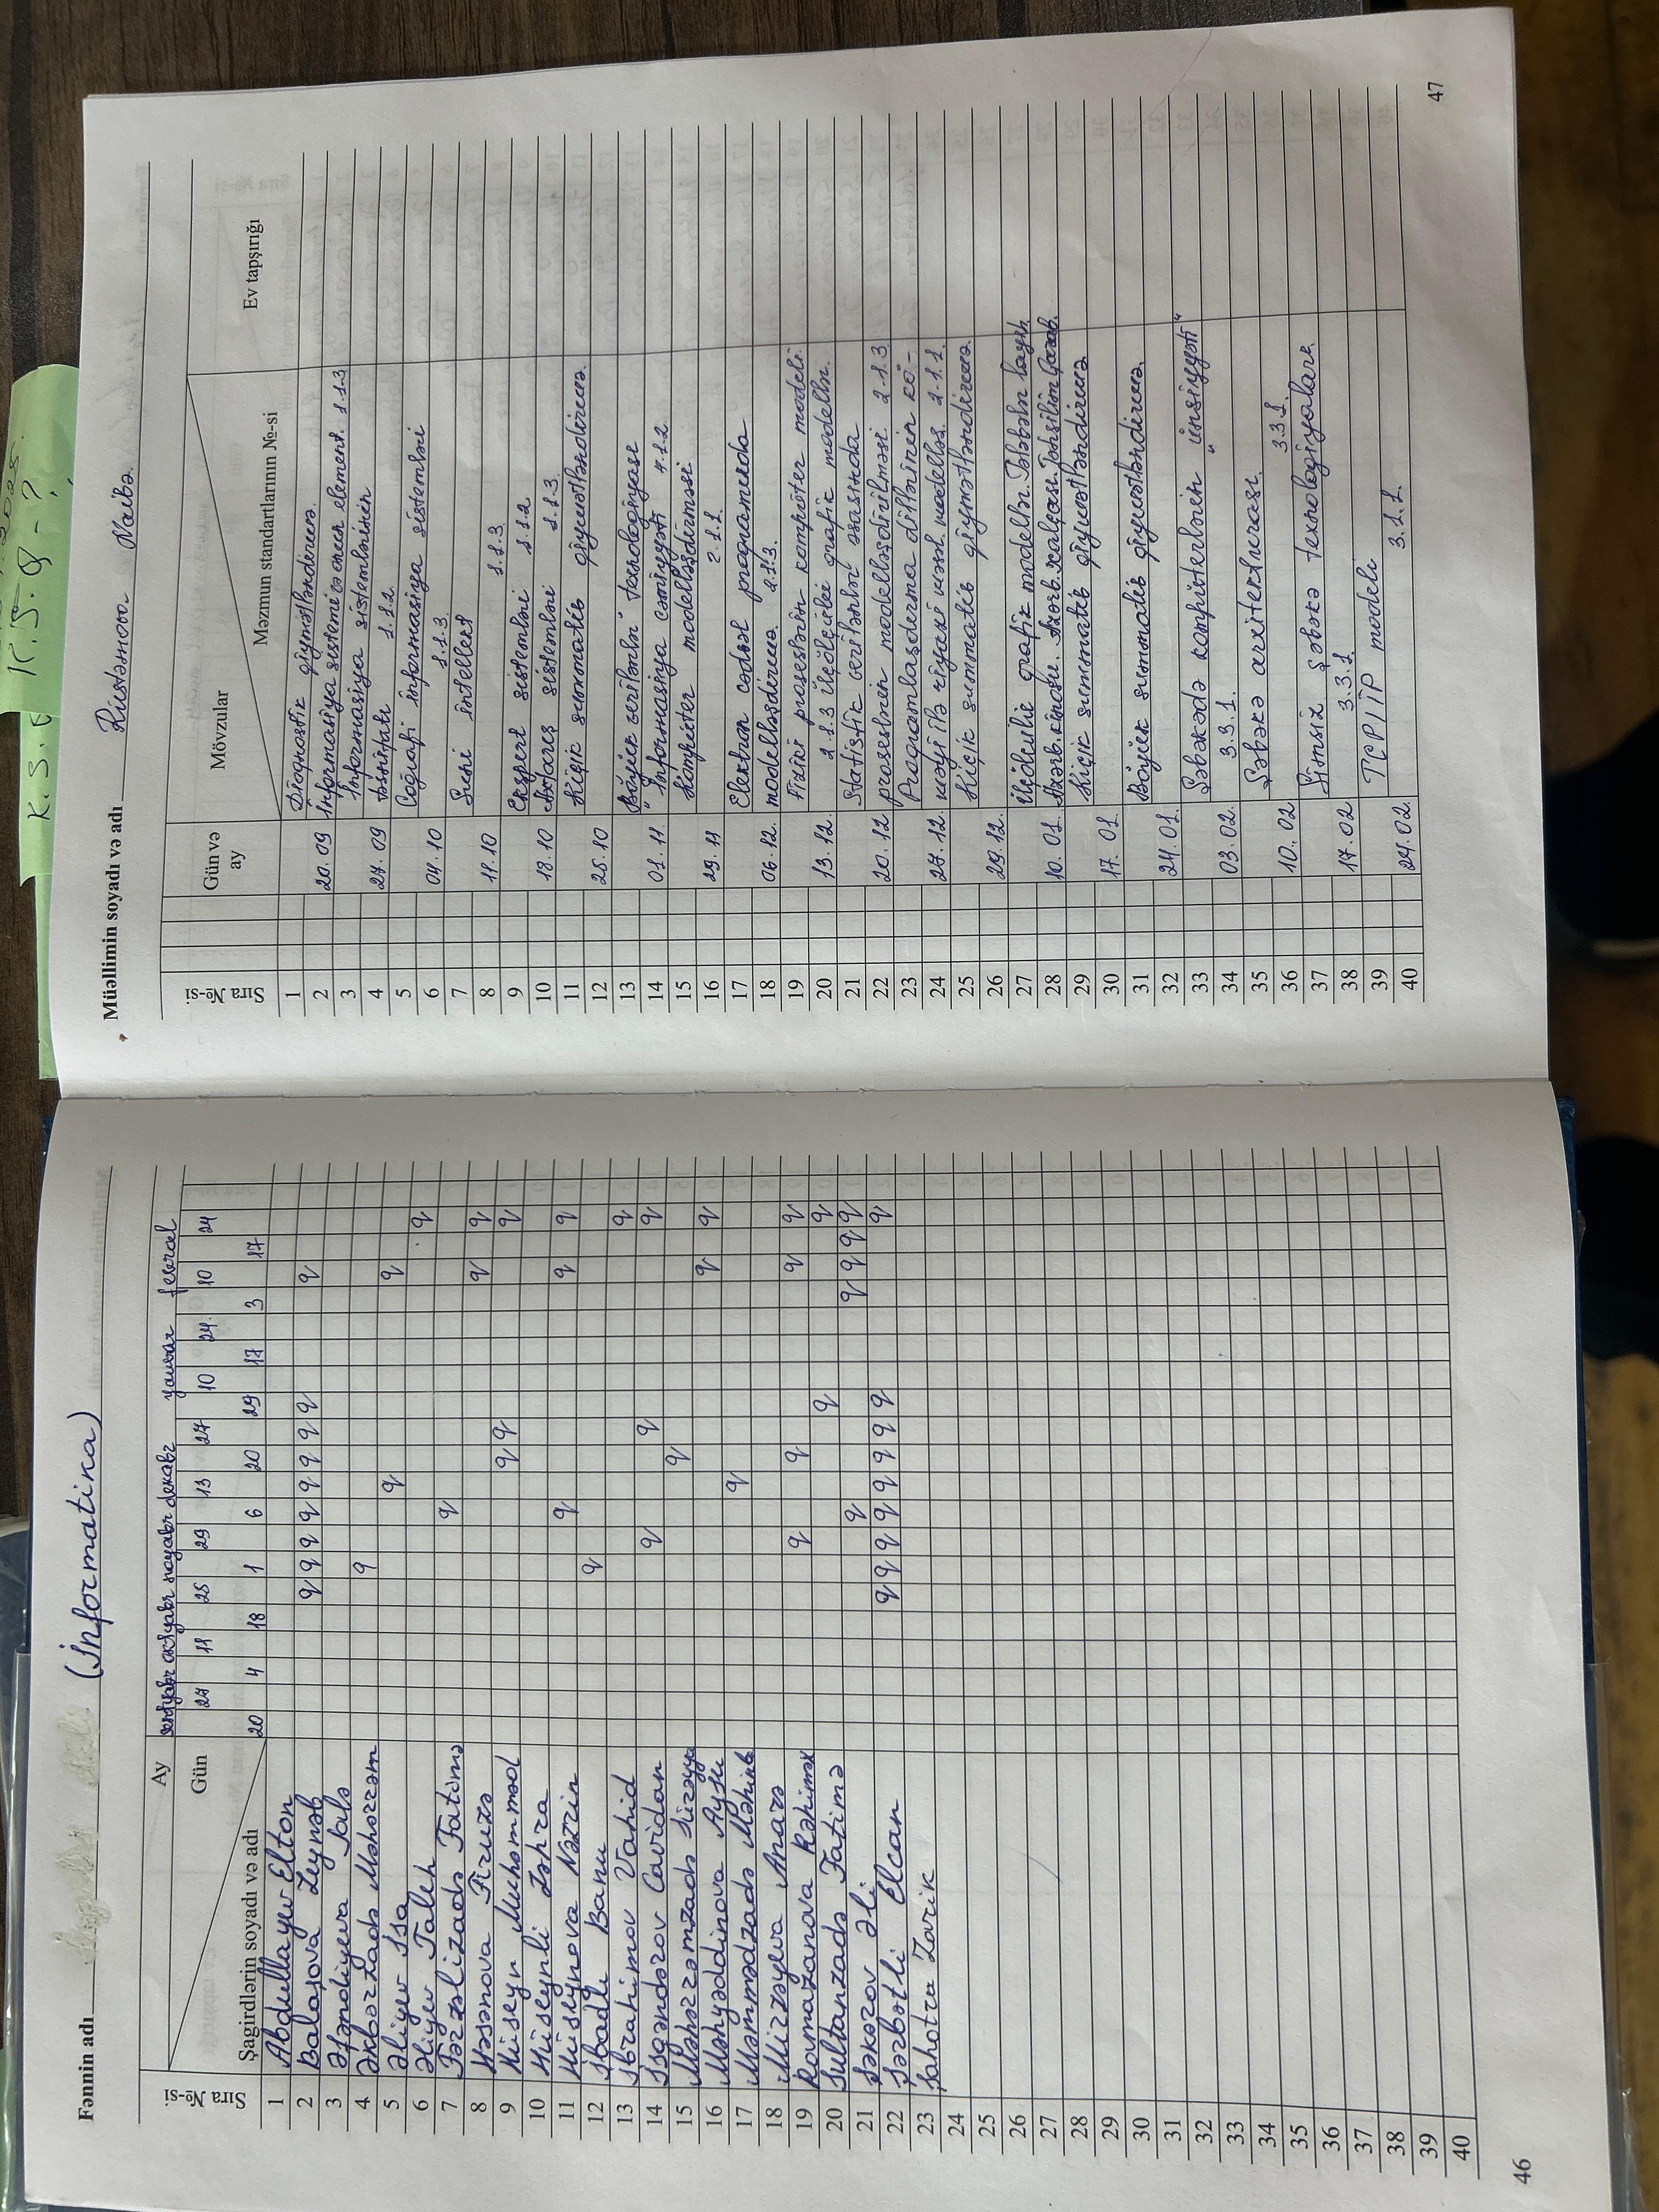 K.S.Q
K.S.Q - ?
Fənnin adı (İnformatika)
Sıra №-si
Ay sentyabr oktyabr noyabr dekabr yanvar fevral
Gün 27 11 25 29 13 27 10 24 10 24
Şagirdlərin soyadı və adı 20 4 18 1 6 20 29 17 3 17
1 Abdullayev Elton
2 Balaşova Zeynəb q q q q q q q q q
3 Əfəndiyeva Jalə
4 Əkbərzadə Məhərrəm q
5 Əliyev İsa q q
6 Əliyev Taleh q
7 Fərzəlizadə Fatimə q
8 Həsənova Firuzə q q
9 Hüseyn Muhəmməd q q q
10 Hüseynli Zəhra
11 Hüseynova Nəzrin q q q
12 İbadlı Banu q
13 İbrahimov Vahid q
14 İsgəndərov Cavidan q q q
15 Məhərrəmzadə Sürəyya q
16 Məhyəddinova Aysu q q
17 Məmmədzadə q
18 Mirzəyeva Anarə
19 Ramazanova q q q q
20 Sultanzadə Fatimə q q
21 Şəkərov Əli q q q q q
22 Şərbətli Elcan q q q q q q q q q
23 Şahotra Zarik
24
25
26
27
28
29
30
31
32
33
34
35
36
37
38
39
40
46
Müəllimin soyadı və adı Rüstəmova Naibə
Sıra №-si
Gün və ay
Mövzular
Məzmun standartlarının №-si
Ev tapşırığı
1 Diaqnostik qiymətləndirmə.
2 20.09 İnformasiya sistemi element. 1.1.3
3 İnformasiya sistemlərinin
4 27.09 təsnifatı 1.1.2.
5 Coğrafi informasiya sistemləri
6 04.10 1.1.3.
7 Süni intellekt
8 11.10 1.1.3.
9 Ekspert sistemləri 1.1.2
10 18.10 Axtarış sistemləri 1.1.3.
11 Kiçik summativ qiymətləndirmə.
12 25.10
13 "Böyük verilənlər" texnologiyası
14 01.11. İnformasiya cəmiyyəti 4.1.2.
15 Kompüter modelləşdirməsi
16 29.11 2.1.1.
17 Elektron cədvəl proqramında
18 06.12. modelləşdirmə. 2.1.3.
19 Fiziki proseslərin kompüter modeli.
20 13.12. 2.1.3 Üçölçülü qrafik modellər.
21 Statistik verilənlər əsasında
22 20.12 proseslərin modelləşdirilməsi 2.1.3
23 Proqramlaşdırma dillərinin kö-
24 27.12. məyi ilə riyazi məsəl. modelləş. 2.1.1.
25 Kiçik summativ qiymətləndirmə.
26 29.12.
27 Üçölçülü qrafik modellər. Tələbələr layih.
28 10.01. Azərb. kinosu. Azərb. xalçası. Təhsilim Qarab.
29 Kiçik summativ qiymətləndirmə
30 17.01.
31 Böyük summativ qiymətləndirmə.
32 24.01.
33 Şəbəkədə kompüterlərin "ünsiyyəti"
34 03.02. 3.3.1.
35 Şəbəkə arxitekturası.
36 10.02 3.3.1.
37 Simsiz şəbəkə texnologiyaları.
38 17.02 3.3.1.
39 TCP/IP modeli
40 24.02. 3.1.1.
47